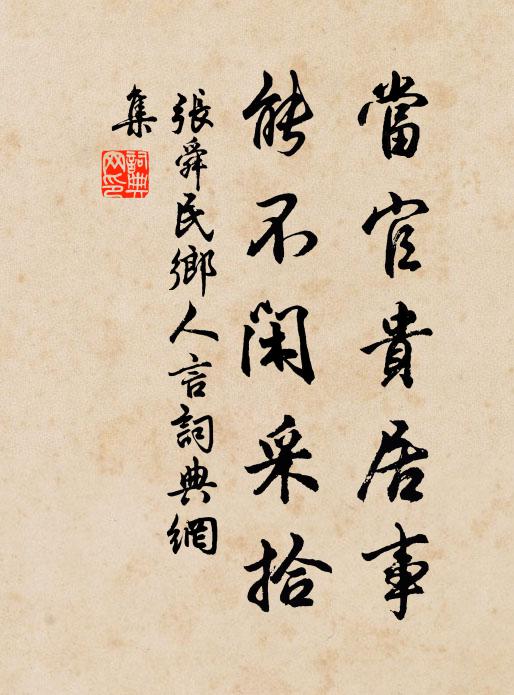 當官貴居事
能不閑采拾
張舜民鄉人言詞典網
集
詞典
网印